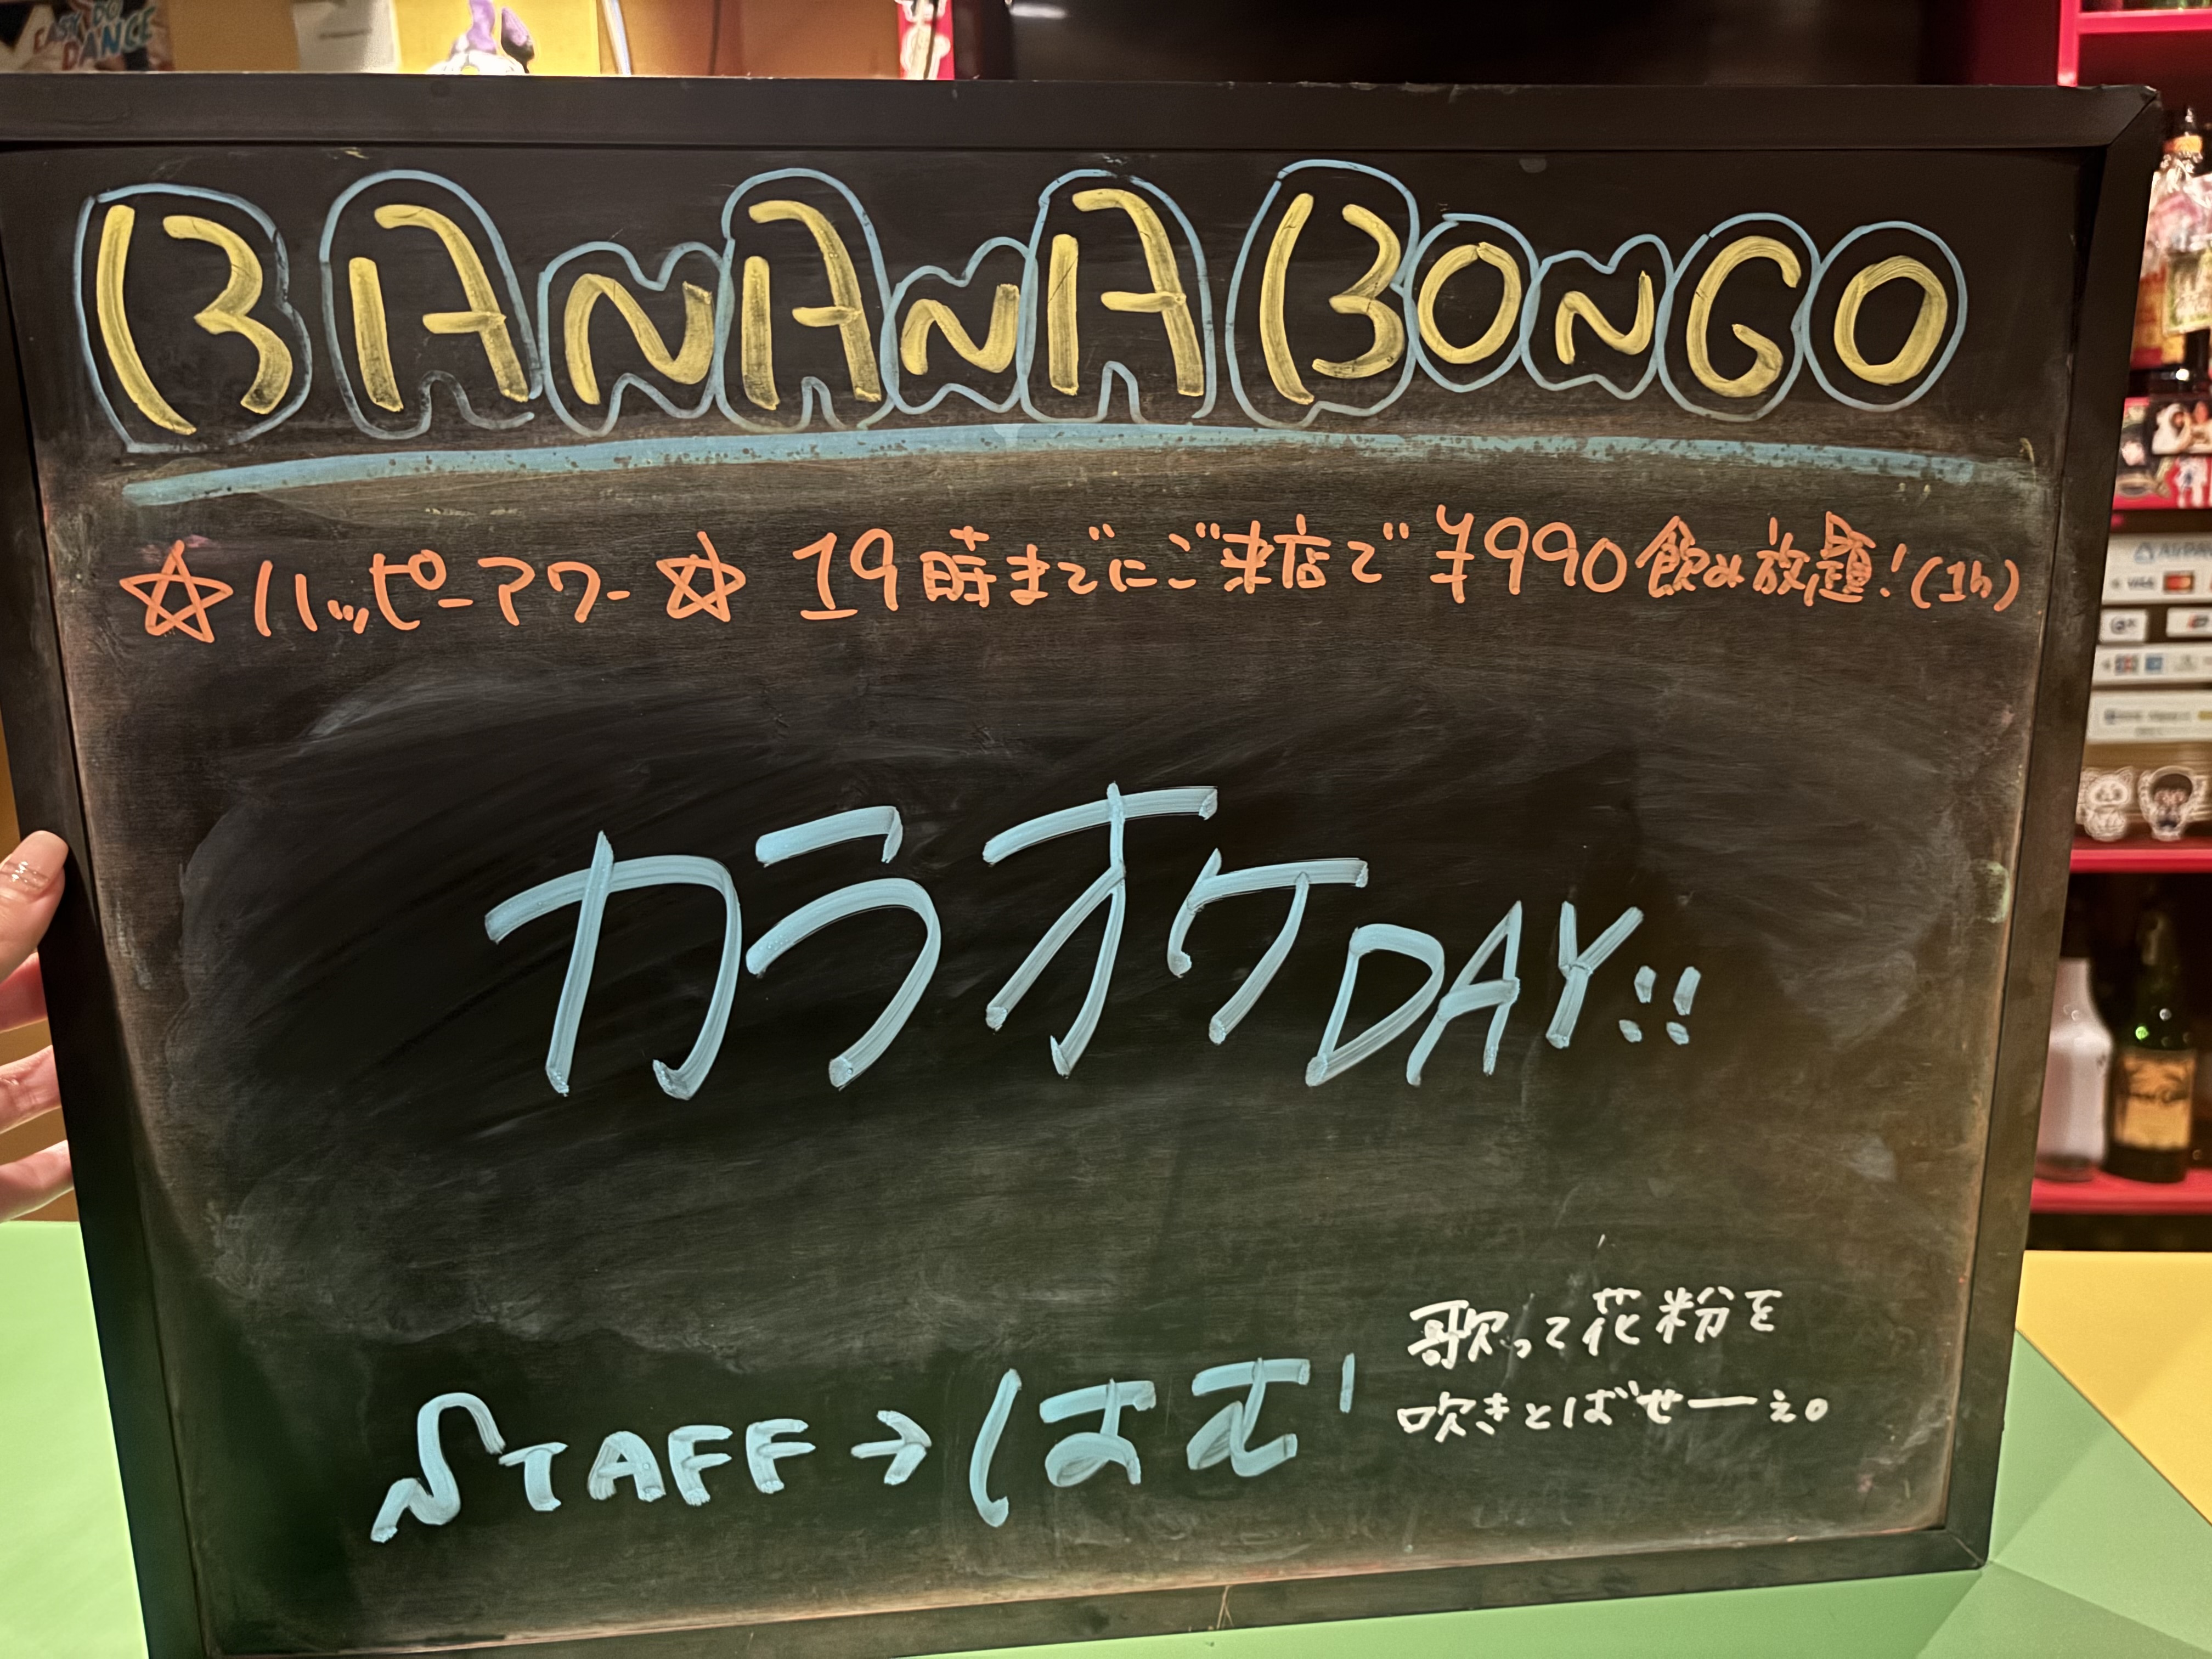 DANCE
BANANA BONGO
☆ハッピーアワー☆ 19時までにご来店で ¥990 飲み放題!(1h)
カラオケDAY!!
STAFF→はむ
歌って花粉を
吹きとばせーぇ。
VISA